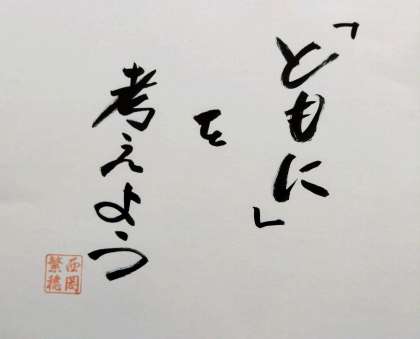 「ともに」
を
考えよう
西岡
繁穂